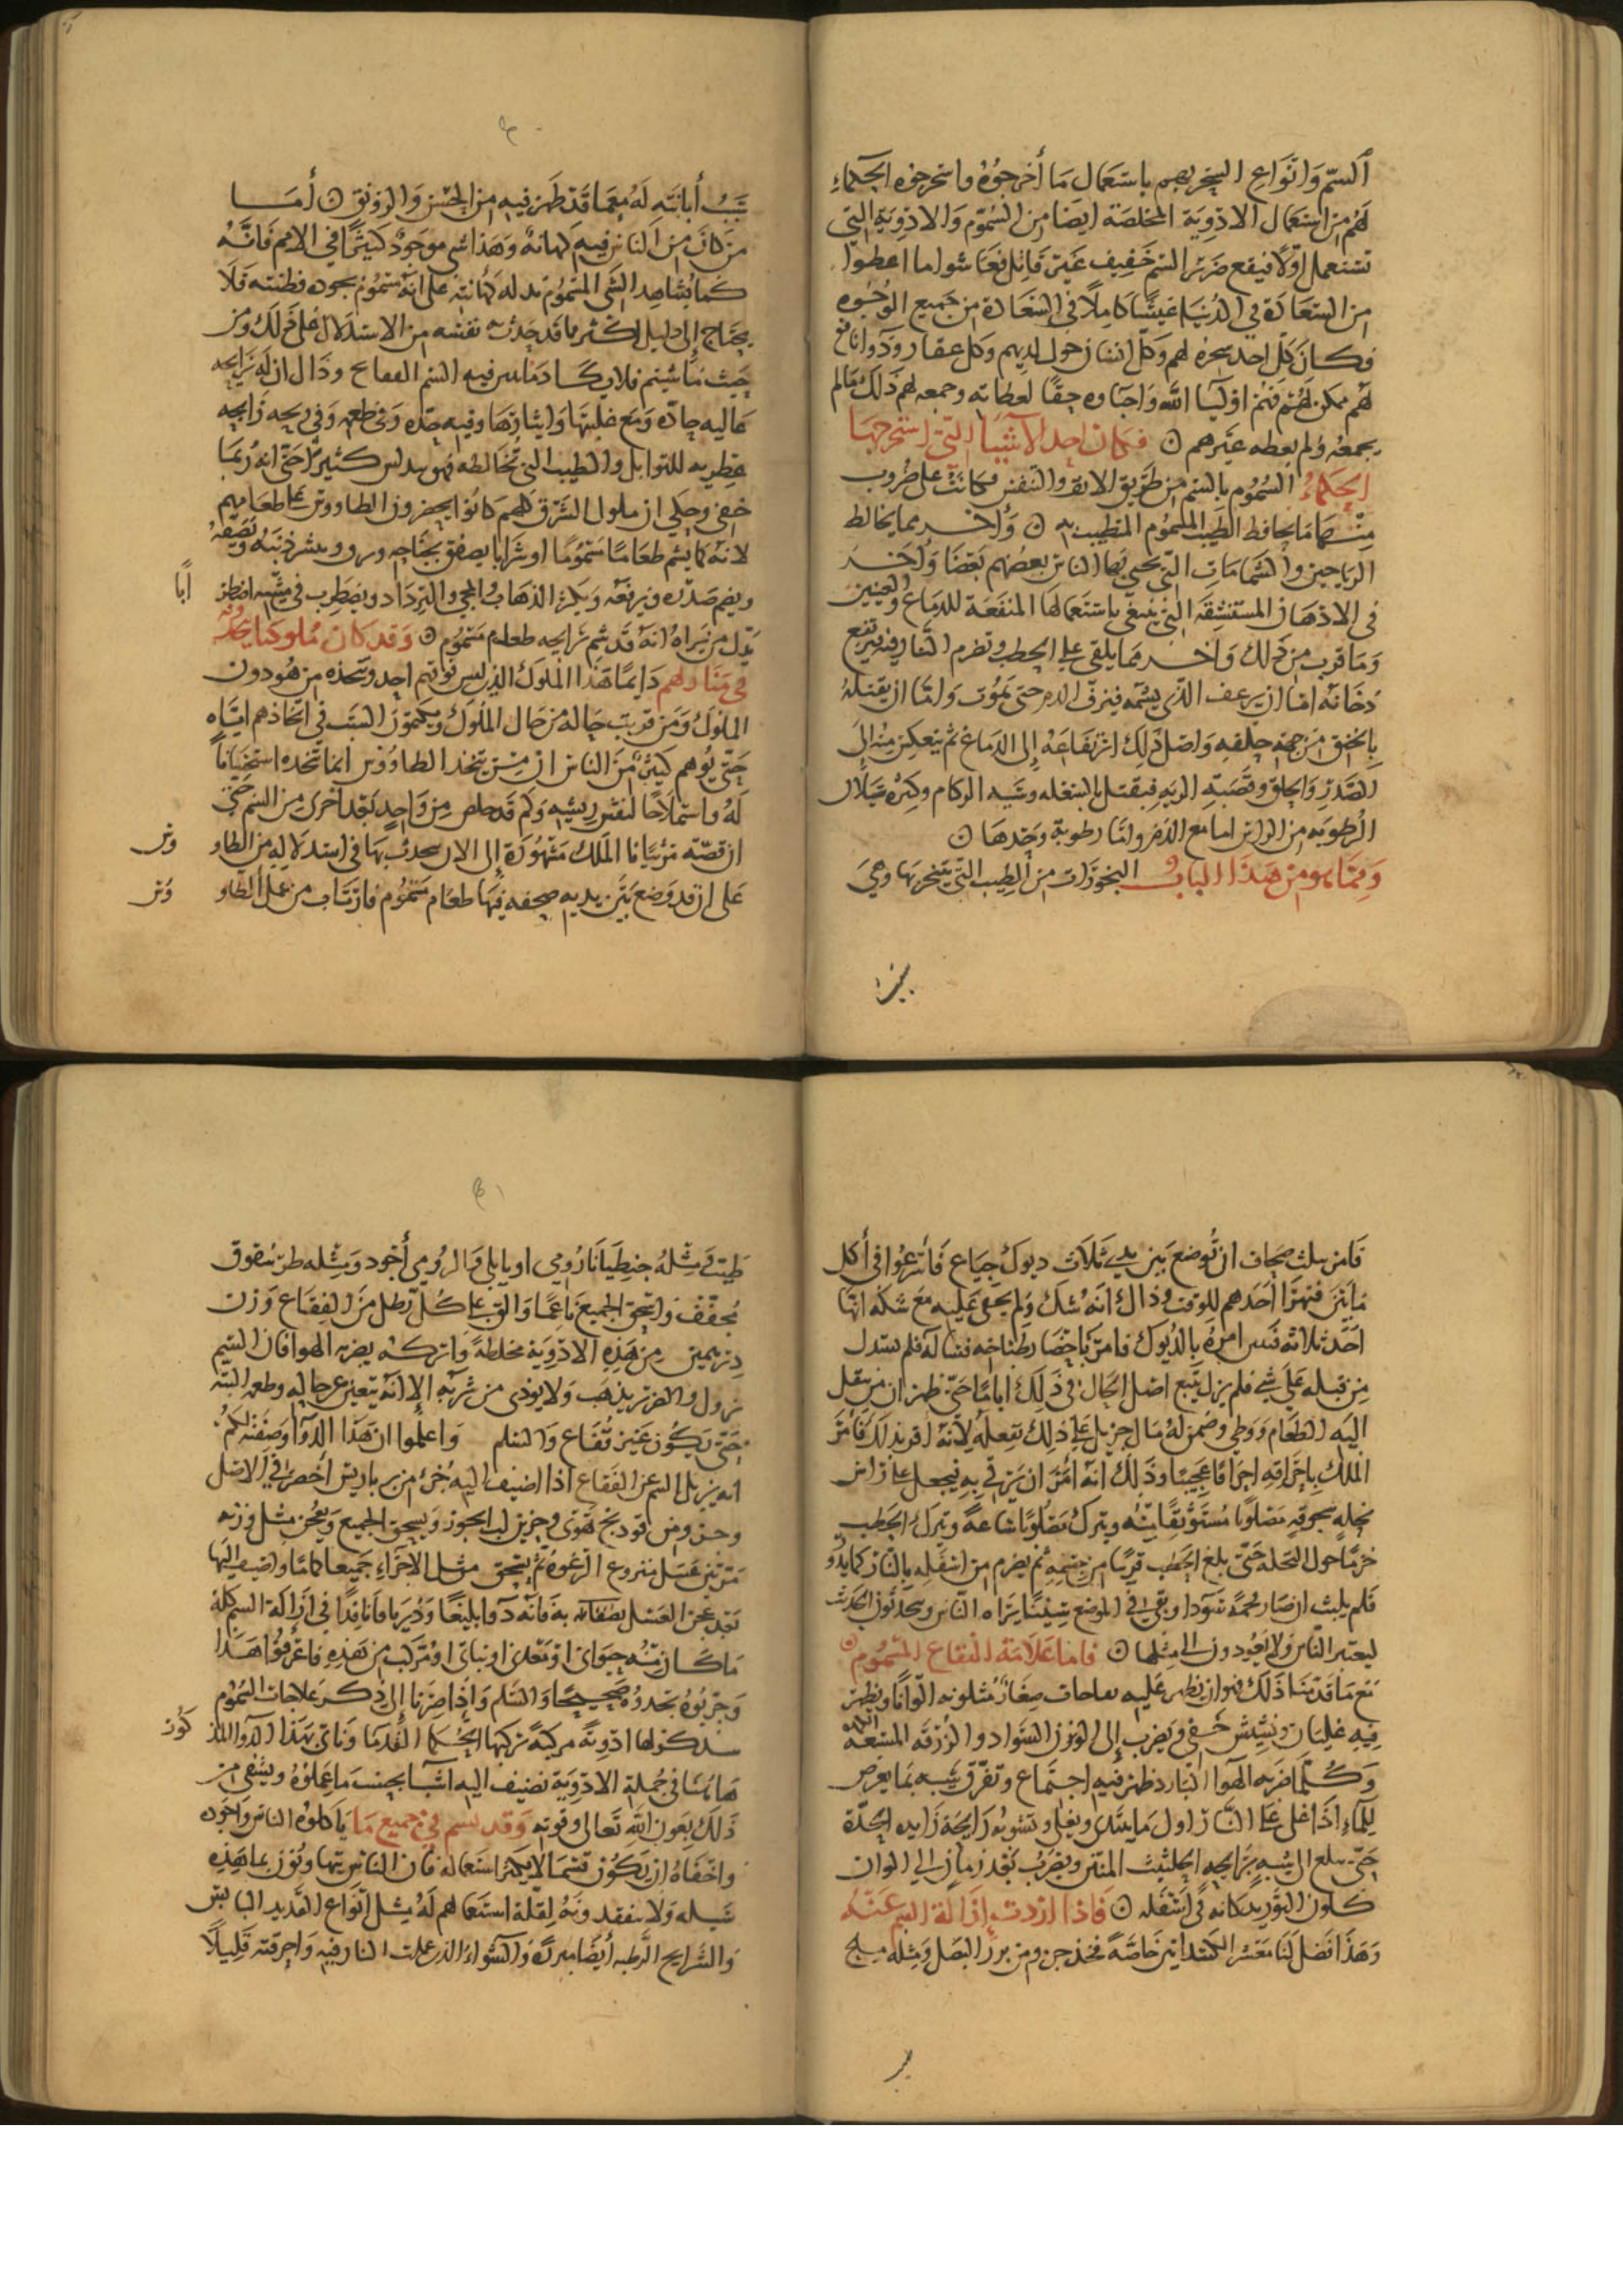 السم وانواع التبخير بهم باستعمال ما أخرجوه واستخرجوه الحكماء
لهم من استعمال الادوية المخلصة ايضا من السموم والادوية التي
تستعمل اولا فيقع ضرر السم خفيف غير قاتل فعاشوا ما اعطوا
من السعادة في الدنيا عيشا كاملا في السعادة من جميع الوجوه
فكان كل احد سخره لهم وكل انسان حول لديهم وكل عقار ودوا نافع
لهم ممكن لهم فهم اوليا الله واحباوه حقا لعطائه وجمعه لهم ذلك ما لم
يجمعه ولم يعطه غيرهم فكان احد الاشيا التي استخرجها
الحكماء السموم بالشم من طريق الانف والتنفس فكانت على ضروب
منها ما يخالط الطيب المسموم المتطيب به وأخر مما يخالط
الرياحين والشمامات التي يحيى بها الناس بعضهم بعضا وأخر
في الادهان المستنشقة التي ينبغي باستعمالها المنفعة للدماغ والعينين
وما قرب من ذلك واخر مما يلقى على الحطب وتضرم النار فيه يرتفع
دخانه اما ان يرعف الذي يشمه فينزف الدم حتى يموت واما ان يقتله
بالخنق من جهة حلقه واصل ذلك ارتفاعه إلى الدماغ ثم ينعكس منه الى
الصدر والحلق وقصبة الريه فيقتل شبه الزكام وكثرة سيلان
الرطوبه من الراس اما مع الدم واما رطوبة وحدها
ومما هو من هذا الباب البخورات من الطيب التي يتبخر بها وهي
سبب أبانته له معما قد ظهر فيه من الحسن والرونق أما
من كان من الناس فيه كهانة وهذا شي موجود كثيرا في الامم فانه
كما يشاهد الشي المسموم تدله كهانته على انه مسموم بجوده فطنته فلا
يحتاج إلى دليل اكثر ما قد حدث به نفسه من الاستدلال على ذلك ومن
حيث ما شيتم فلا يكاد فيه السم وذاك ان له رايحه
غاليه حاده ومع غلبتها وايثارها وفيه حده وفي طعمه وفي ريحه رايحه
عطريه للتوابل والطيب التي تخالطه فهو يدلس كثيرا حتى انه ربما
خفي وحكي ان ملوك الشرق كلهم كانوا يحضرون الطاووس على طعامهم
لانه كما يشم طعاما مسموما او شرابا يصفق بجناحه وينشر ذنبه ويصفه
ويضم صدره ويرفعه ويكثر الذهاب والمجي والترداد ويضطرب في مشيه اضطر ابا
يدل من يراه انه قد شم رايحه طعام مسموم وقد كان ملوكنا يتخذونه
في منازلهم دايما هذا الملوك الذي ليس فوقهم احد ويتخذه من هو دون
الملوك ومن قربت حاله من حال الملوك ويكتمون السبب في اتخاذهم اياه
حتى يوهم كثير من الناس ان من يتخذ الطاووس انما يتخذه استحسانا
له واستملاحا لنفس ريشه وكم قد خلص من واحد بعد اخرى من السم حتى
ان قصة الملك مشهورة إلى الان يتحدث بها في استدلاله من الطاو وس
على ان قد وضع بين يديه صحفه فيها طعام مسموم فارتاب من عمل الطاو وس
فامر بثلث صحاف ان توضع بين يدي ثلاث ديوك جياع فأسرعوا في أكل
احد ثلاثة امره بالديوك فامر باحضار طباخه فساله فلم يستدل
من قبله على شي فلم يزل يتتبع اصل الحال في ذلك اياما حتى ظهر ان من ينقل
اليه الطعام ووطي وضمن له مال جزيل على ذلك بفعله لانه اقر بذلك فأمر
الملك باحراقه احراقا عجيبا وذلك انه امر ان يرتقي به فيجعل على راس
نخله سحوقه مصلوبا مستوثقا منه ويترك مصلوبا ساعة ويترك الحطب
حزما حول النخله حتى بلغ الحطب قريبا من جسمه ثم يضرم من اسفله بالنار كما يدو
فلم يلبث ان صار فحمة سودا وبقي في الموضع سنينا يراه الناس ويتحدثون الحدث
ليعتبر الناس ولا يعودون الى مثلها فاما علامة الفقاع المسموم
مع ما قدمنا ذلك فهو ان يظهر عليه نفاخات صغار متلونه الوانا ويظهر
فيه غليان ونشيش خفي ويضرب إلى لون السواد والزرقة المشبعة
وكلما ضربه الهوا البارد ظهر فيه اجتماع وتفرق شبيه بما يعرض
للماء اذا غلى على النار اول ما يبتدي ويغلي وتشوبه رايحة زايده الحدة
حتى يبلغ الى شبه رايحه الحلتيت المنتن ويضرب بعد زمان الى الوان
كلون التوريد كانه في اسفله فاذا اردت ازالة السم عنه
وهذا افضل لنا معشر الكسدانيين خاصة فخذ جزو من بزر البصل ومثله ملح
طيب ومثله جنطيانا رومي او بابلي والرومي أجود ومثله طين
مجفف واسحق الجميع ناعما والق على كل رطل من الفقاع وزن
درهمين من هذه الادوية مخلطة واتركه يضربه الهوا فان السم
يزول والضرر يذهب ولا يوذي من شربه إلا انه يتغير عن حاله وطعمه البته
حتى يكون غير فقاع والسلم واعلموا ان هذا الدوا وصفته لكم
انه يزيل السم عن الفقاع اذا اضيف اليه جزء من برباريس اخضر في الاصل
وجزو من فودنج نهري وجزين لب الجوز ويسحق الجميع ويعجن مثل وزنه
مرتين عسل منزوع الرغوة ثم يسحق مثل الاجزاء جميعا كماشا واضيف اليها
بعد عجن العسل به فانه دوا بليغا وديرياقا نافذا في ازالة السم كله
ما كان منه حيواني او معدني او نباتي او مركب من هذه فاعرفوا هذا
وجربوه تجدوه صحيحا والسلم وإذا صرنا إلى ذكر علاجات السموم
سنذكر لها ادوية مركبة تركبها الحكما القدما وناتي بهذا الدوا المذ كور
هاهنا في جملة الادوية نضيف اليه اشيا بحسب ما عملوه ويشفى من
ذلك بعون الله تعالى وقوته وقد يسم في جميع ما يأكلوه الناس واجوده
واخفاه ان يكون قسما لا يكثر استعماله فان الناس
سبيله ولا يتفقدونه لقلة استعمالهم له مثل انواع القديد اليابس
والشرايح الرطبه أيضا مبردة والشواء الذي عملت النار فيه واحرقته قليلا